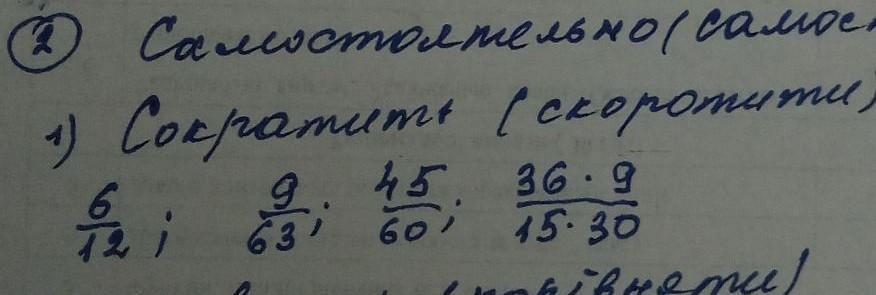 ② Самостоятельно (самос
1) Сократить (скоротити)
6/12; 9/63; 45/60; 36·9/15·30
(порівняти)